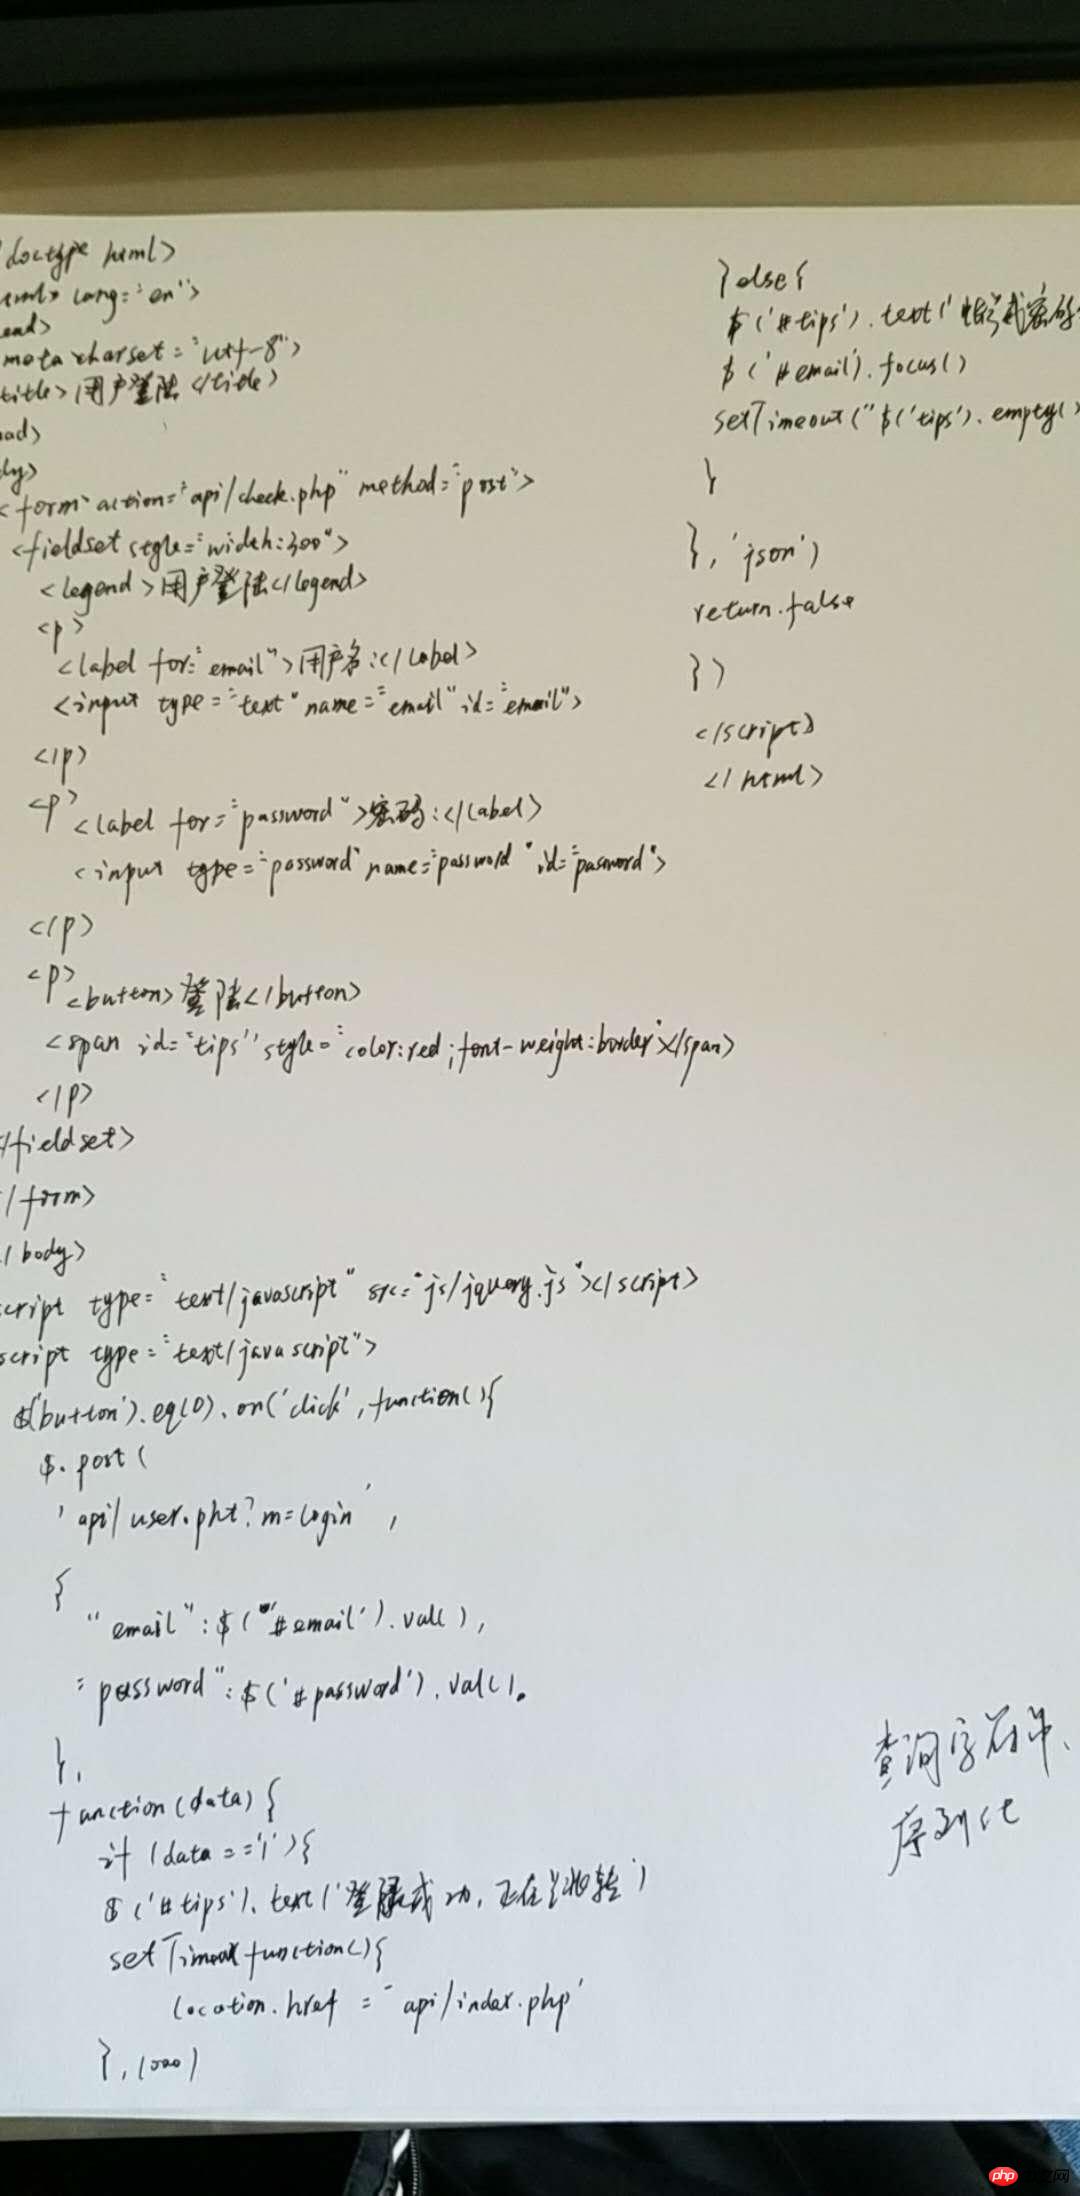 doctype html>
html> lang="en">
ead>
meta charset="utf-8">
title>用户登陆</title>
ead>
dy>
<form action="api/check.php" method="post">
<fieldset style="width:300">
<legend>用户登陆</legend>
<p>
<label for="email">用户名:</label>
<input type="text" name="email" id="email">
</p>
<p>
<label for="password">密码:</label>
<input type="password" name="password" id="password">
</p>
<p>
<button>登陆</button>
<span id="tips" style="color:red;font-weight:border"></span>
</p>
</fieldset>
</form>
</body>
script type="text/javascript" src="js/jquery.js"></script>
script type="text/javascript">
$('button').eq(0).on('click',function(){
$.post(
'api/user.pht?m=login',
{
"email":$('#email').val(),
"password":$('#password').val().
},
function(data){
if(data=='1'){
$('#tips').text('登陆成功,正在跳转')
setTimeout function(){
location.href = 'api/index.php'
},1000)
}else{
$('#tips').text('帐号或密码
$('#email').focus()
setTimeout("$('tips').empty()
}
},'json')
return.false
})
</script>
</html>
查询字符串、
序列化
php